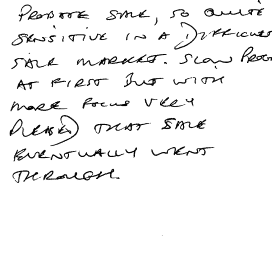 PROBATE SALE, SO QUITE
SENSITIVE IN A DIFFICULT
SALE MARKET. SLOW PROG
AT FIRST BUT WITH
MORE FOCUS VERY
PLEASED THAT SALE
EVENTUALLY WENT
THROUGH.